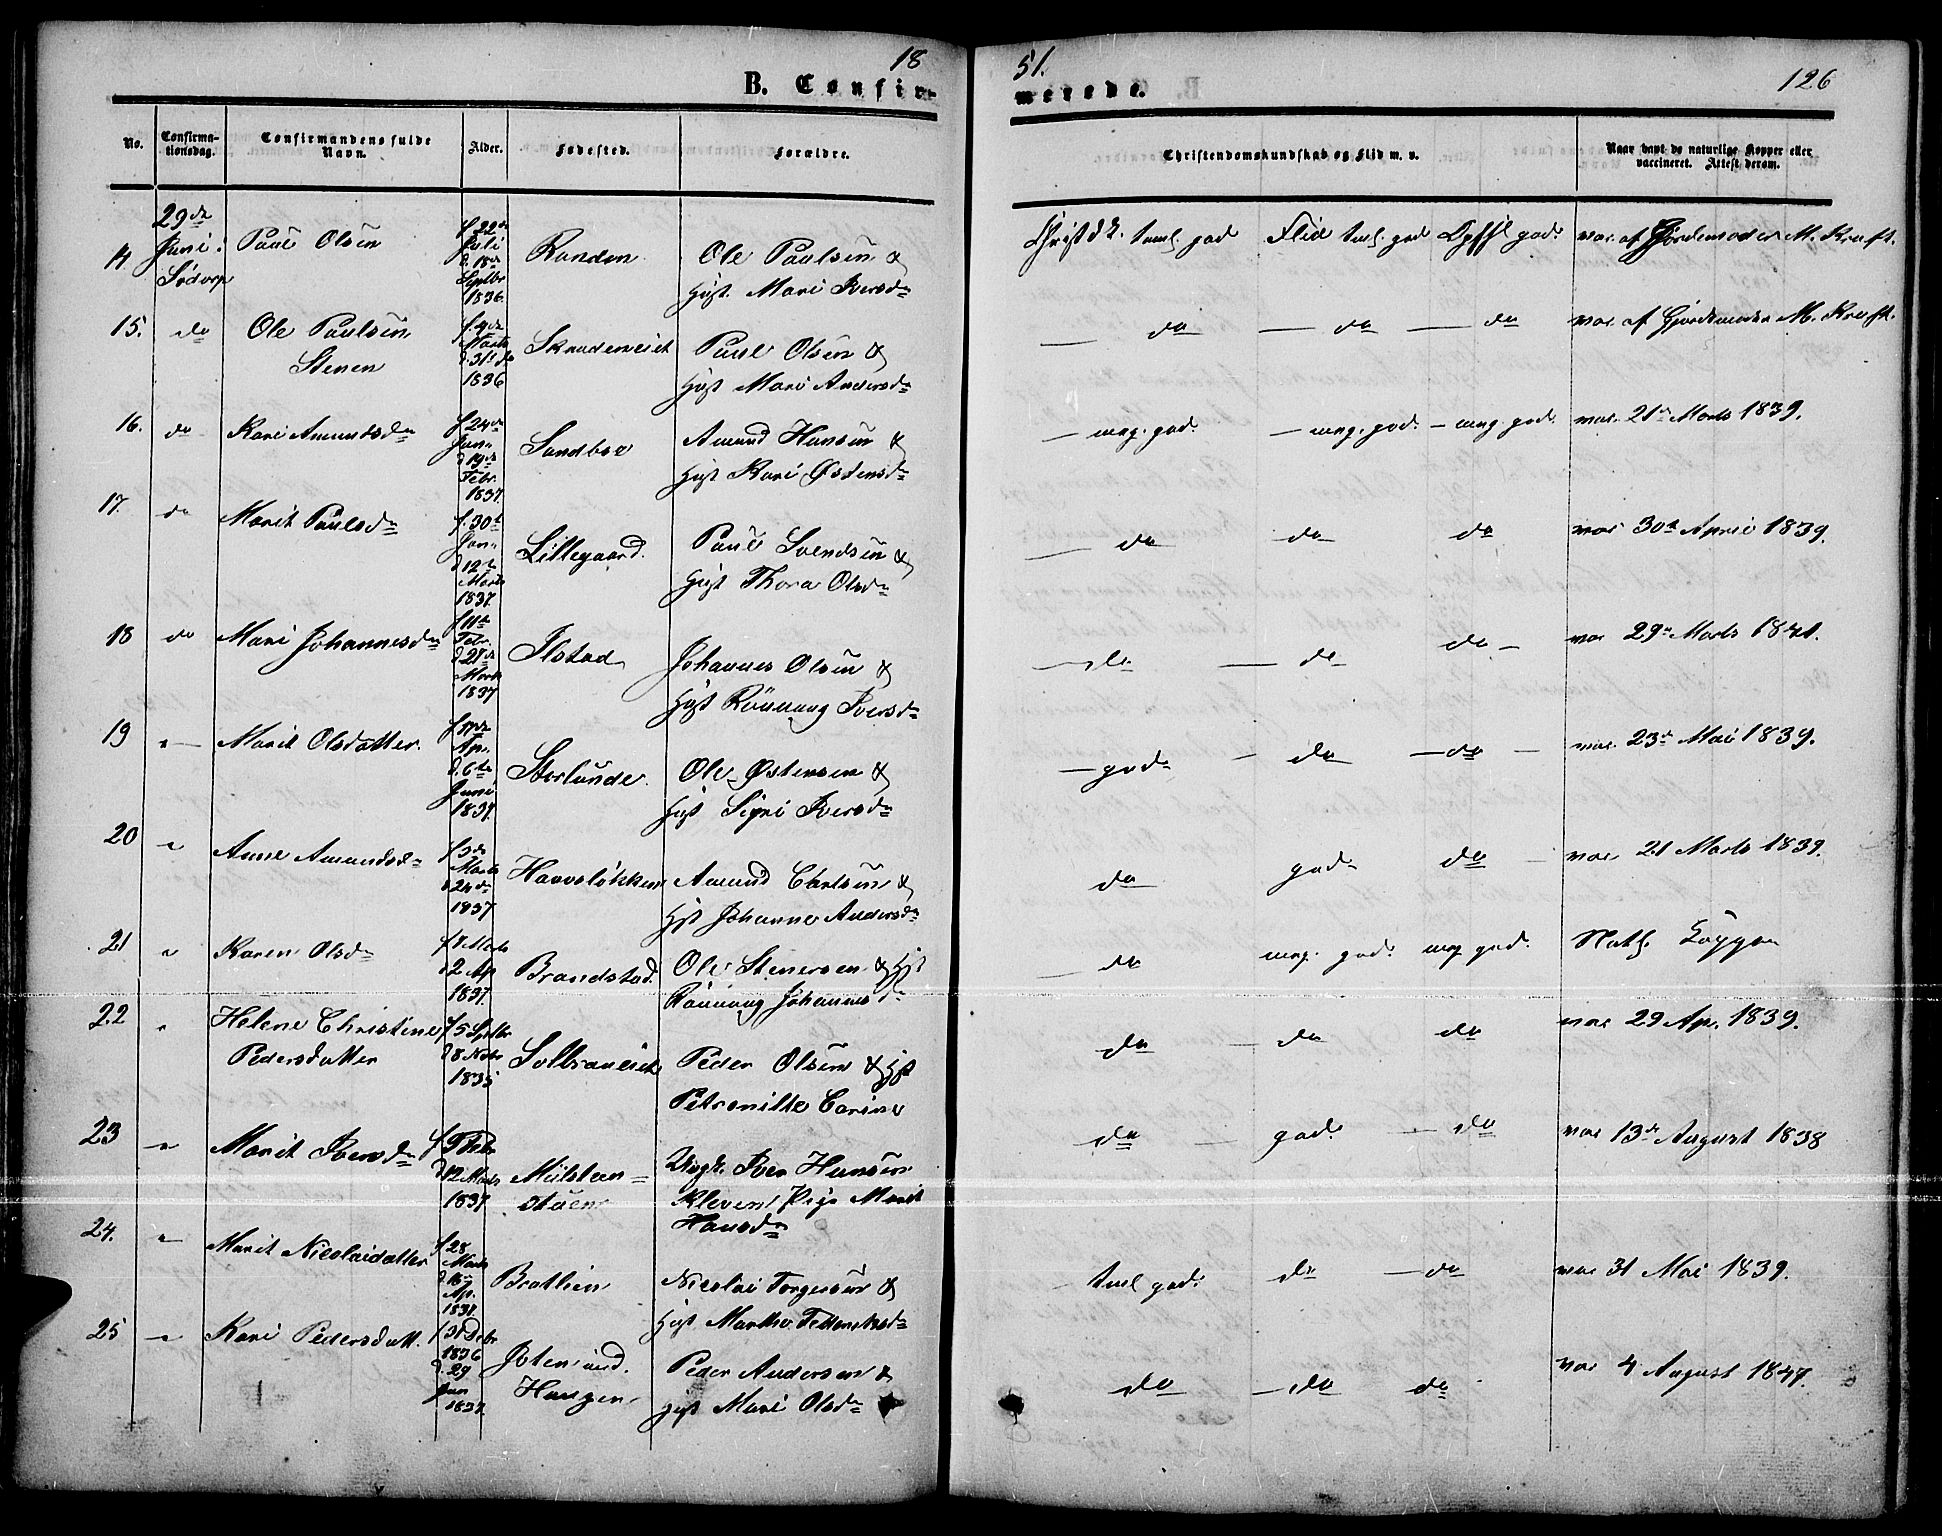 18
51.
126
B. Confir-
merede.
No.
Confirma-
tionsdag.
Confirmandens fulde
Navn.
Alder.
Fødested.
Forældre.
Christendomskundskab og Flid m. v.
Naar havt de naturlige Kopper eller
vaccineret. Attest derom.
14
29de
Juni i
Södorp
Paul Olsen
f 22de
Juli
d. 18de
Septbr
1836.
Randen
Ole Paulsen &
Hust. Mari Iversdn
Christdk. teml. god
Flid teml. god
god
vac. af Gjordemoder M. Kraft.
15.
do
Ole Paulsen
Stenen
f. 4de
Marts
d. 31t do
1836
Paul Olsen &
Hust Mari Andersdn
do
do
do
vac. af Gjordemoder M. Kraft.
16.
do
Kari Amundsdn
f 24de
Jan.
d 19de
Febr.
1837.
Sandboe
Amund Hansen &
Hust Kari Østensdn
meg. god.
meg. god.
meg. god.
vac. 21de Marts 1839.
17.
do
Marit Paulsdn
f. 30te
Jan.
d 12te
Marts
1837.
Lillegaard.
Paul Svendsen &
Hust Thora Olsdn
do
do
do
vac 30te April 1839.
18
do
Mari Johannesdn
f 11te
Febr.
d 21de
Marts
1837
Ilstad
Johannes Olsen &
Hust Rönnaug Iversdn
do
do
do
vac 29de Marts 1841.
19
"
Marit Olsdatter.
Apr.
d. 6te
Juni
1837.
Storlunde.
Ole Østensen &
Hust Sigri Iversdn
god
do
do
vac. 23de Mai 1839.
20
"
Anne Amundsdn
f 3de
Marts
d 24de
1837
Haavesløkken
Amund Carlsen &
Hst Johanne Andersdn
do
god
do
vac 21 Marts 1839.
21
"
Karen Olsdn
f 7 Marts
d 2 Ap
1837.
Brandstad.
Ole Stenersen & Hst
Rönnaug Johannesdn
do
meg. god.
meg god.
Natl. Kopper
22
"
Helene Christine
Pedersdatter
f 5 Septbr
d 8 Novbr
1835
Peder Olsen & Hst
Petronille Carine
do
do
do
vac 29 Ap. 1839.
23
"
Marit Iversdn
f 9 Febr
d 12 Marts
1837
Milsteen-
stuen
Ungk. Iver Hansen
Kleven, Pige Marit
Hansdn
do
god.
do
vac 13de August 1838
24.
"
Marit Nicolaidatter
f 28
Marts
d 16de
Ap.
1837.
Brathien
Nicolai Torgersen &
Hust Marthe
teml god.
do
do
vac 31 Mai 1839.
25
"
Kari Pedersdatt.
f 31 Decbr
1836
d. 29
Jan
1837.
Haugen
Peder Andersen &
Hust Mari Olsdn
do
do
do
vac 4 August 1847.